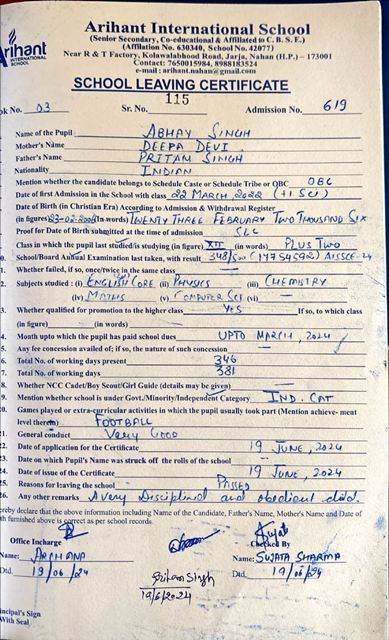 Arihant
INTERNATIONAL
SCHOOL
Arihant International School
(Senior Secondary, Co-educational & Affiliated to C.B.S.E.)
(Affilation No. 630340, School No. 42077)
Near R & T Factory, Kolawalabhood Road, Jarja, Nahan (H.P.) – 173001
Contact: 7650015984, 8988183524
e-mail : arihant.nahan@gmail.com
SCHOOL LEAVING CERTIFICATE
ok No. 03 Sr. No. 115 Admission No. 619
Name of the Pupil ABHAY SINGH
Mother's Name DEEPA DEVI
Father's Name PRITAM SINGH
Nationality INDIAN
Mention whether the candidate belongs to Schedule Caste or Schedule Tribe or OBC OBC
Date of first Admission in the School with class 22 MARCH 2022 (+1 SCI)
Date of Birth (in Christian Era) According to Admission & Withdrawal Register
(in figures) 23-02-2006 (in words) TWENTY THREE FEBRUARY TWO THOUSAND SIX
Proof for Date of Birth submitted at the time of admission SLC
Class in which the pupil last studied/is studying (in figure) XII (in words) PLUS TWO
0. School/Board Annual Examination last taken, with result 348/500 (17545992) AISSCE-24
1. Whether failed, if so, once/twice in the same class
2. Subjects studied : (i) ENGLISH CORE (ii) PHYSICS (iii) CHEMISTRY
(iv) MATHS (v) COMPUTER SCI (vi)
3. Whether qualified for promotion to the higher class YES If so, to which class
(in figure) (in words)
4. Month upto which the pupil has paid school dues UPTO MARCH, 2024
5. Any fee concession availed of; if so, the nature of such concession
6. Total No. of working days present 346
7. Total No. of working days 381
8. Whether NCC Cadet/Boy Scout/Girl Guide (details may be given)
9. Mention whether school is under Govt./Minority/Independent Category IND. CAT
0. Games played or extra-curricular activities in which the pupil usually took part (Mention achieve- ment
level therein) FOOTBALL
21. General conduct Very Good
22. Date of application for the Certificate 19 JUNE, 2024
23. Date on which Pupil's Name was struck off the rolls of the school
24. Date of issue of the Certificate 19 JUNE, 2024
25. Reasons for leaving the school PASSED
26. Any other remarks A very Disciplined and obedient child.
ereby declare that the above information including Name of the Candidate, Father's Name, Mother's Name and Date of
th furnished above is correct as per school records.
Office Incharge
Name: ARCHANA
Dtd. 19/06/24
Pritam Singh
19/6/2024
Sujat
Checked By
Name: SUJATA SHARMA
Dtd. 19/06/24
incipal's Sign
With Seal